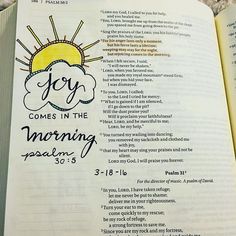 PSALM 30:2
Joy
COMES IN THE
morning
psalm
30:5
3-18-16
²LORD my God, I called to you for help,
and you healed me.
³You, LORD, brought me up from the realm of the dead;
you spared me from going down to the pit.
⁴Sing the praises of the LORD, you his faithful people;
praise his holy name.
⁵For his anger lasts only a moment,
but his favor lasts a lifetime;
weeping may stay for the night,
but rejoicing comes in the morning.
⁶When I felt secure, I said,
"I will never be shaken."
⁷LORD, when you favored me,
you made my royal mountain stand firm;
but when you hid your face,
I was dismayed.
⁸To you, LORD, I called;
to the Lord I cried for mercy:
⁹"What is gained if I am silenced,
if I go down to the pit?
Will the dust praise you?
Will it proclaim your faithfulness?
¹⁰Hear, LORD, and be merciful to me;
LORD, be my help."
¹¹You turned my wailing into dancing;
you removed my sackcloth and clothed me
with joy,
¹²that my heart may sing your praises and not be
silent.
LORD my God, I will praise you forever.
Psalm 31
For the director of music. A psalm of David.
¹In you, LORD, I have taken refuge;
let me never be put to shame;
deliver me in your righteousness.
²Turn your ear to me,
come quickly to my rescue;
be my rock of refuge,
a strong fortress to save me.
³Since you are my rock and my fortress,